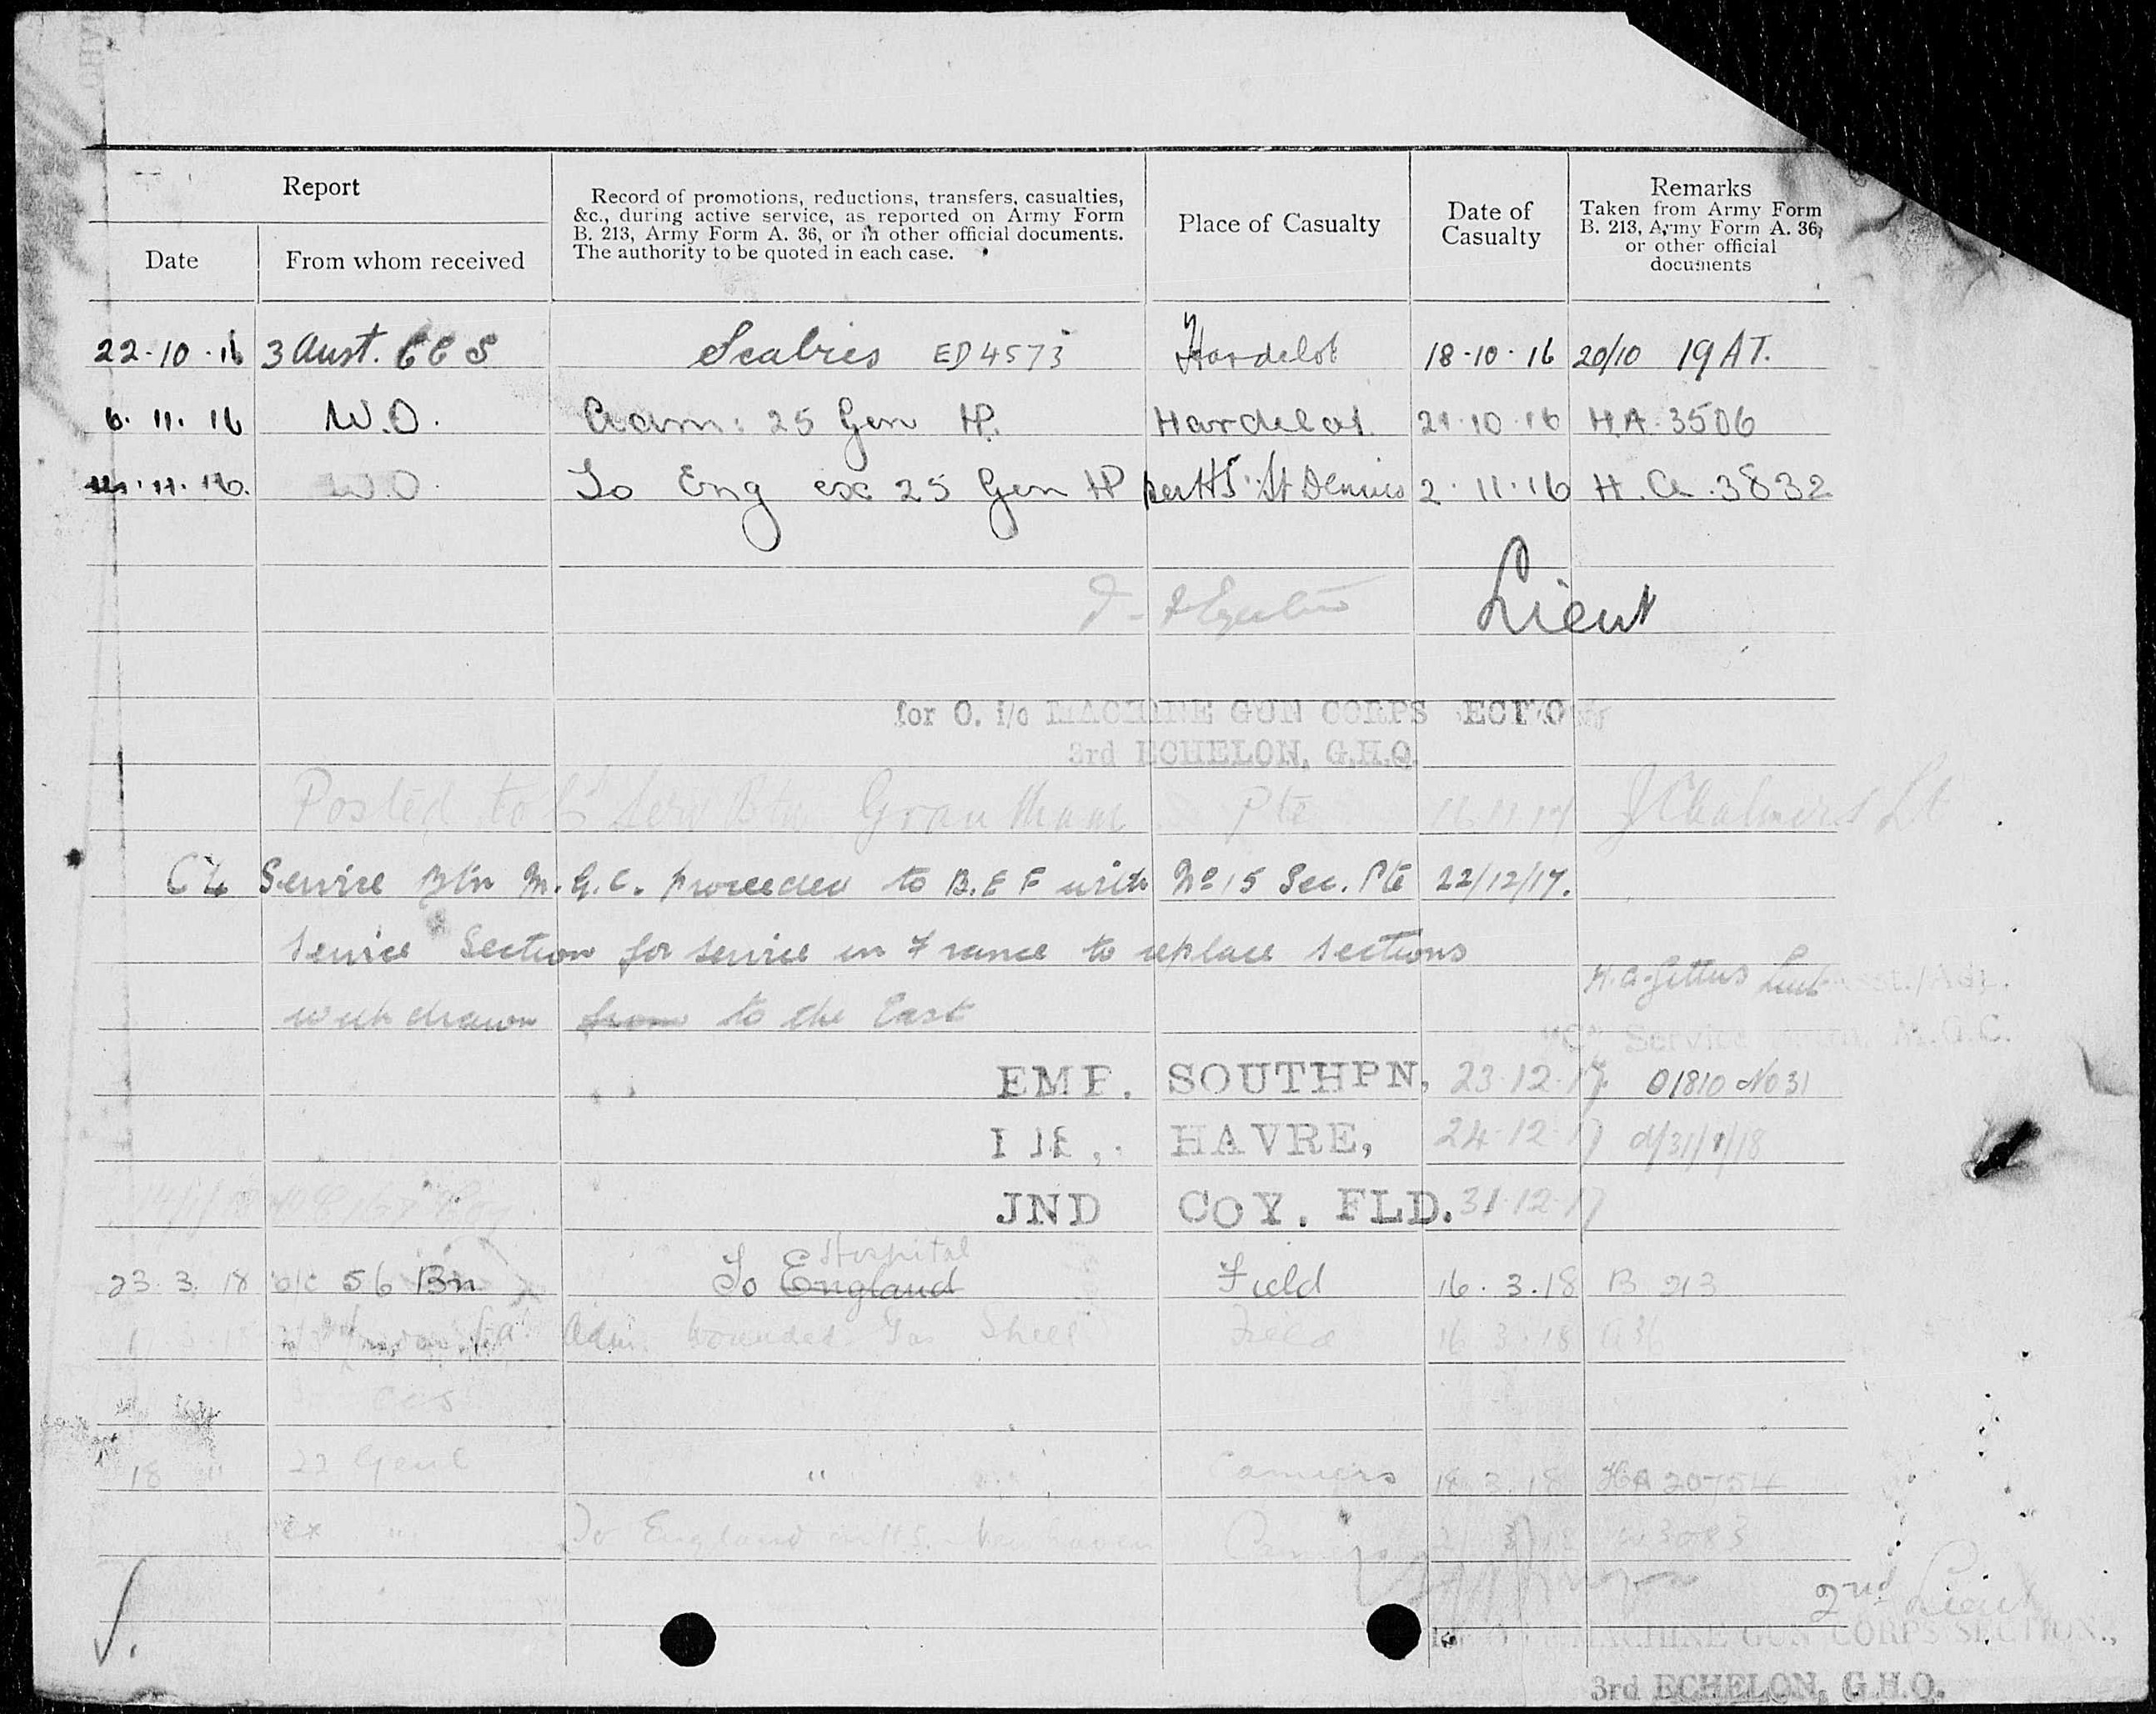 Report
Record of promotions, reductions, transfers, casualties,
&c., during active service, as reported on Army Form
B. 213, Army Form A. 36, or in other official documents.
The authority to be quoted in each case.
Place of Casualty
Date of
Casualty
Remarks
Taken from Army Form
B. 213, Army Form A. 36,
or other official
documents
Date
From whom received
22.10.16 3 Aust. CCS Scabies ED4573 Hardelot 18.10.16 20/10 19 AT.
6.11.16 W.O. Adm: 25 Gen H. Hardelot 21.10.16 H.A. 3506
11.16. W.O. To Eng ex 25 Gen HP per HS St Dennis 2.11.16 H.A. 3832
Lieut
for O. i/c MACHINE GUN CORPS SECTION
3rd ECHELON, G.H.Q.
Posted to Serv Btn Grantham Pte 11.11.17 J Chalmers Lt
Service Btn M.G.C. proceeded to B.E.F with No 15 Sec. Pte 22/12/17.
Service Section for service in France to replace sections
withdrawn from to the East
H.A. Gittus Lieut Asst./Adj.
"C" Service Battn. M.G.C.
EMP. SOUTHPN, 23.12.17 01810 No 31
HAVRE, 24.12.17 d/31/1/18
JND COY. FLD. 31.12.17
Hospital
23.3.18 o/c 56 Bn To England Field 16.3.18 B 213
Adm. Wounded Gas Shell Field 16.3.18 A36
CCS
18 " 22 Genl " Camiers 18.3.18 HA 20754
ex " To England on H.S. Newhaven 3.18 W3083
2nd Lieut
MACHINE GUN CORPS SECTION.,
3rd ECHELON, G.H.Q.